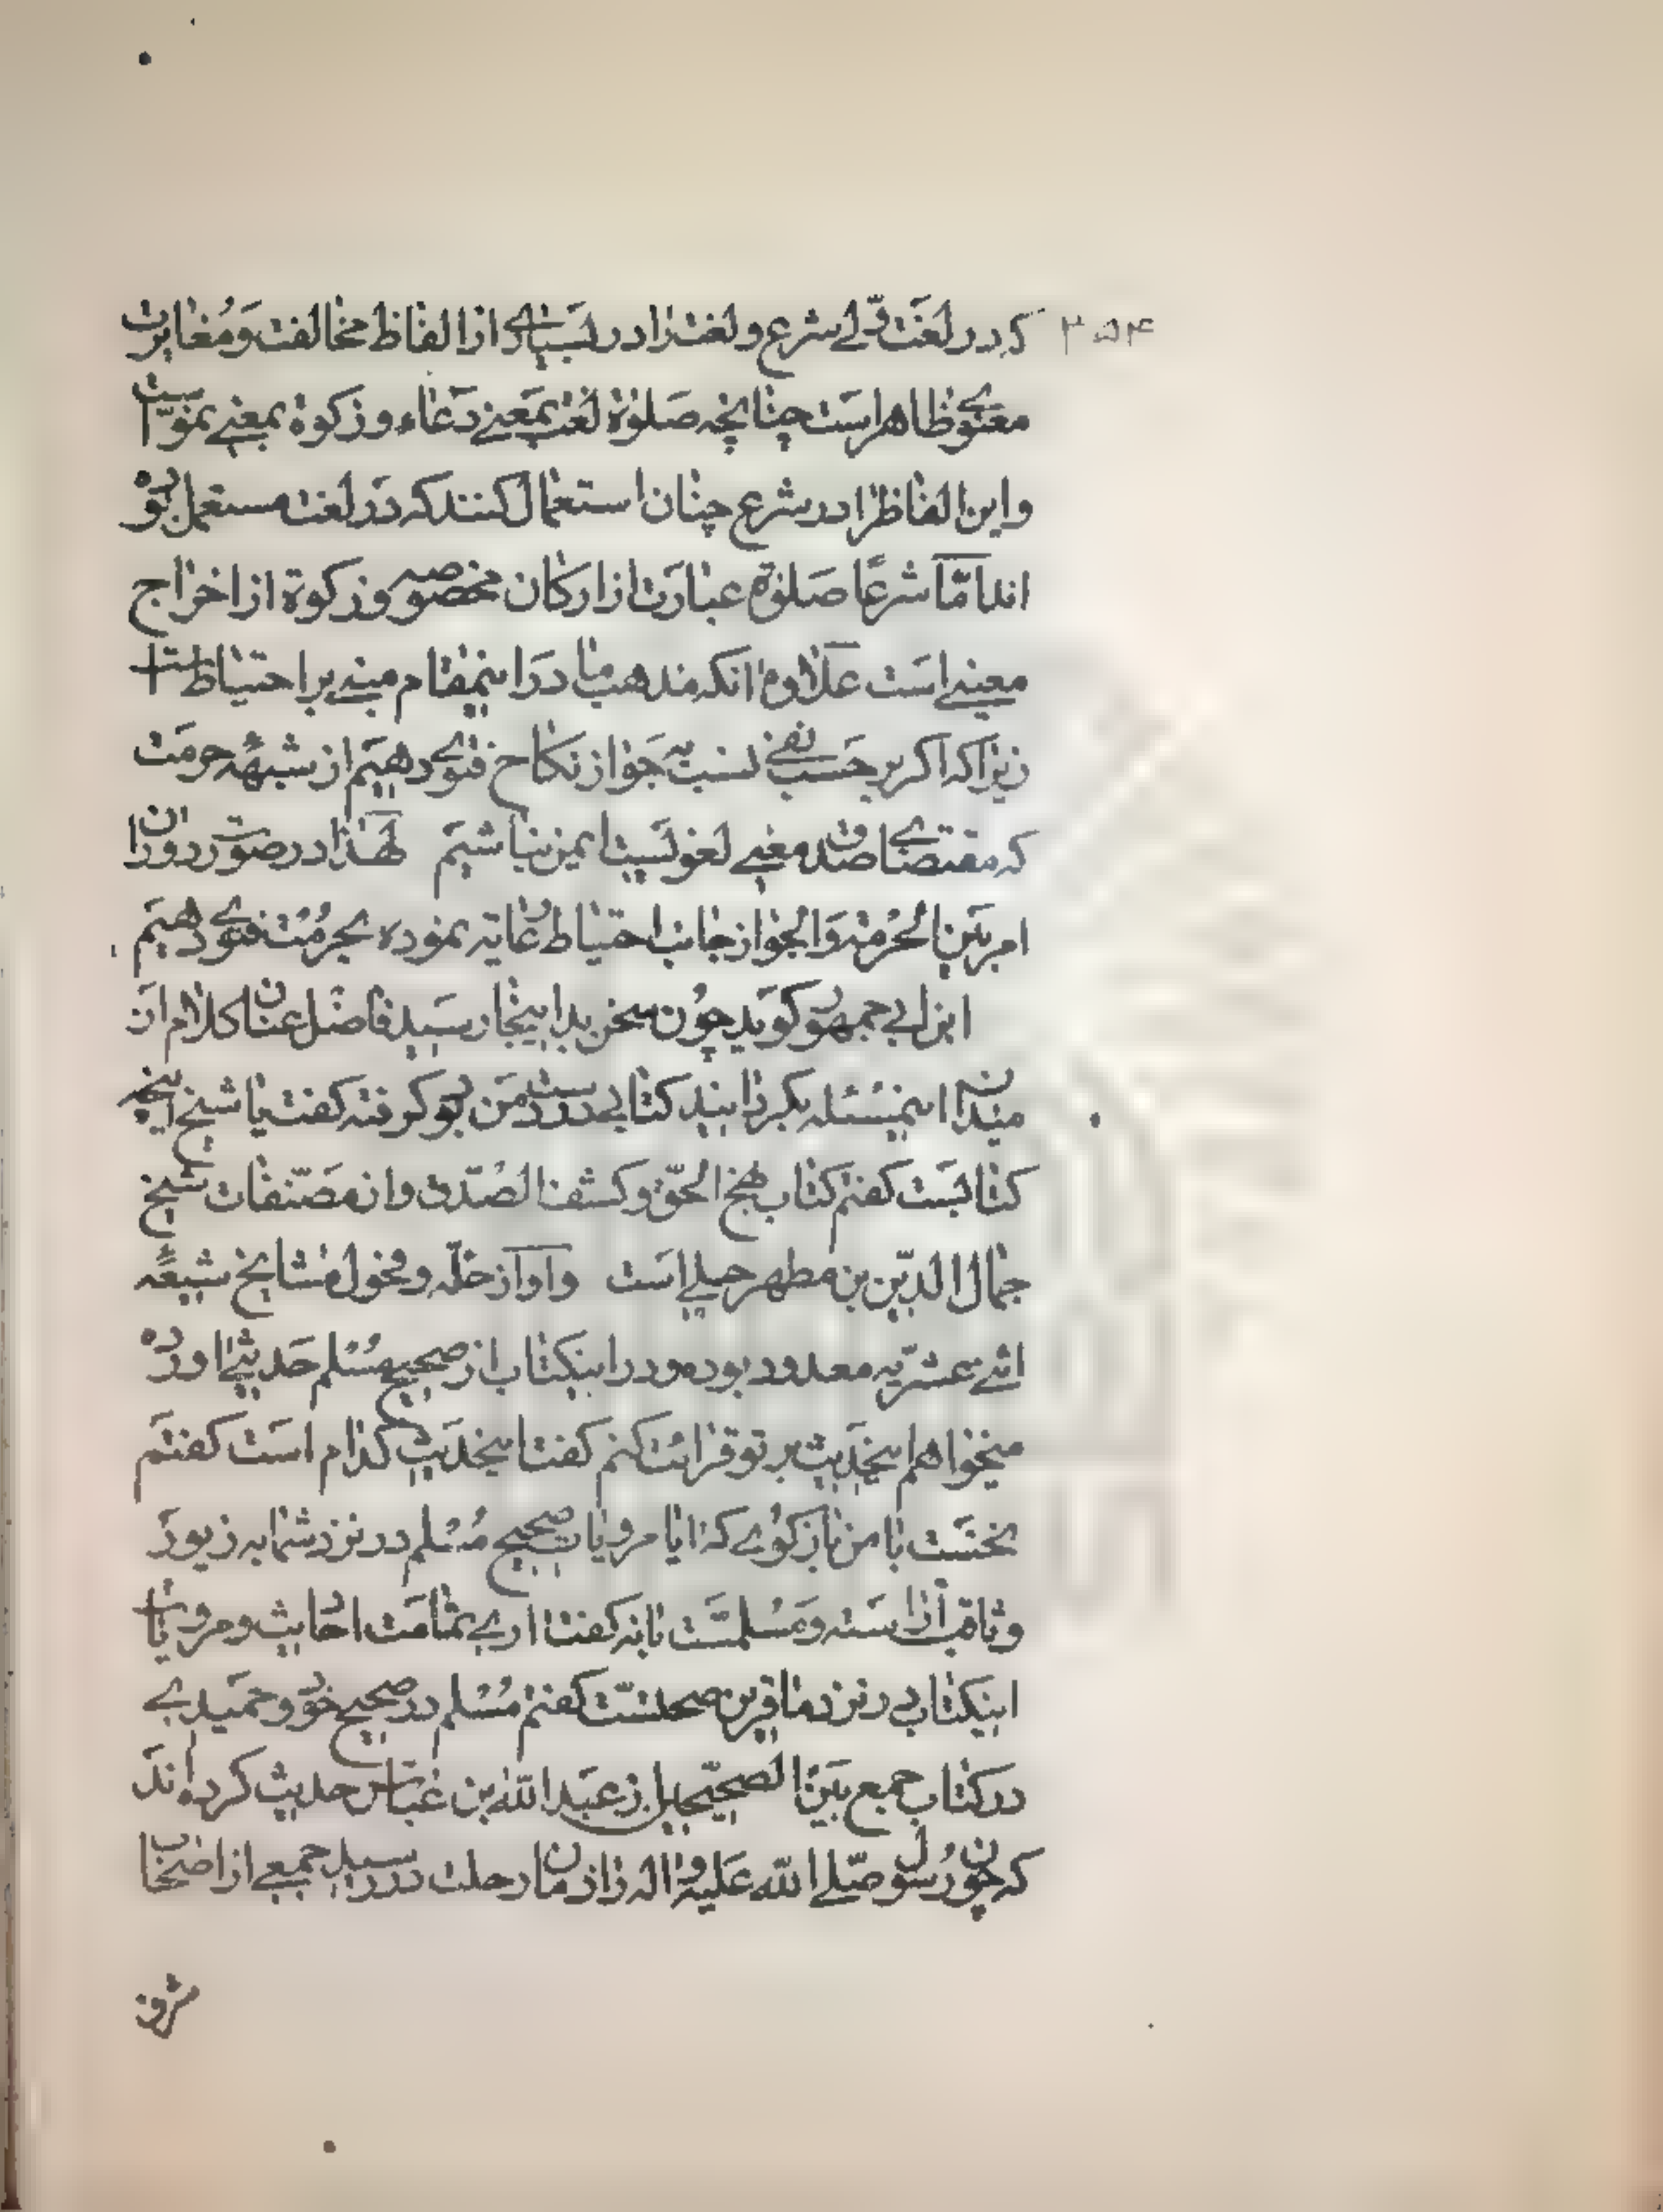 ۳۵۴
که در لغت ولی شرع و لغت را در بسیاری از الفاظ مخالفت و مغایرت
معنوی ظاهر است چنانچه صلوة لغت بمعنی دعاء و زکوة بمعنی نمو است
و این الفاظ را در شرع چنان استعمال کنند که در لغت مستعمل بوده
اند اما شرعا صلوة عبارت از ارکان مخصوصه و زکوة از اخراج
معینی است علاوه آنکه مذهب ما در اینمقام مبنی بر احتیاط است
زیرا که اکر بر حسب نفی نسبت به جواز نکاح فتوی دهیم از شبهه حرمت
که مقتضای صدق معنی لغویست ایمن نباشیم لهذا در صورت دوران
امر بین الحرمة و الجواز جانب احتیاط رعایت نموده بحرمت فتوی دهیم
ابن ابی جمهور کوید چون سخن بداینجا رسید فاضل عنان کلام از ان
میدان اینمسئله بکردانید کتابی در دست من بود کرفته کفت یا شیخ این چه
کتابست کفتم کتاب نهج الحق و کشف الصدق و از مصنفات شیخ
جمال الدین بن مطهر حلی است و او از جله و فحول مشایخ شیعه
اثنی عشریه معدود بوده و در اینکتاب از صحیح مسلم حدیثی آورده
میخواهم اینحدیث بر تو قرائت کنم کفت اینحدیث کدام است کفتم
نخست با من باز کوی که ایا مرویات صحیح مسلم در نزد شما به زیور
وثاقت آراسته و مسلمست یا نه کفت اری بتمامت احادیث و مرویات
اینکتاب در نزد ما قرین صحتست کفتم مسلم در صحیح خود و حمیدی
در کتاب جمع بین الصحیحین از عبد الله بن عباس حدیث کرده اند
که چون رسول صلی الله علیه و اله را زمان رحلت در رسید جمعی از اصحاب